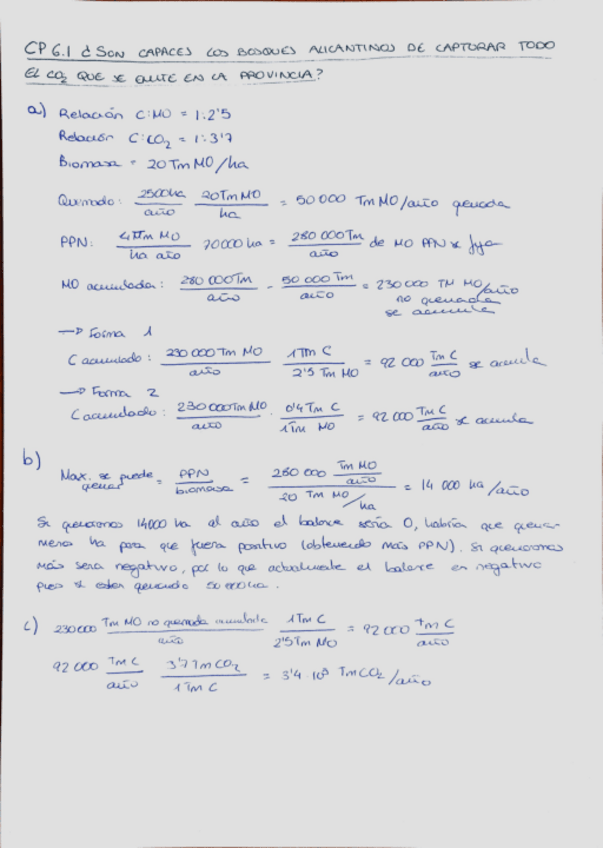 CP 6.1 ¿ SON CAPACES LOS BOSQUES ALICANTINOS DE CAPTURAR TODO
EL CO2 QUE SE EMITE EN LA PROVINCIA?
a) Relación C:MO = 1:2'5
Relación C:CO2 = 1:3'7
Biomasa = 20 Tm MO/ha
Quemado: 2500ha/año 20TmMO/ha = 50 000 Tm MO/año quemada
PPN: 4Tm MO/ha año 70000 ha = 280 000Tm/año de MO PPN se fija
MO acumulada: 280 000Tm/año - 50 000 Tm/año = 230 000 Tm MO/año
no quemada
se acumula
→ Forma 1
C acumulado: 230 000 Tm MO/año 1Tm C/2'5 Tm MO = 92 000 Tm C/año se acumula
→ Forma 2
C acumulado: 230 000Tm MO/año · 0'4 Tm C/1Tm MO = 92 000 Tm C/año se acumula
b)
Max. se puede quemar = PPN/biomasa = 280 000 Tm MO/año / 20 Tm MO/ha = 14 000 ha/año
Si quemamos 14000 ha al año el balance sería 0, habría que quemar
menos ha para que fuera positivo (obteniendo más PPN). Si quemamos
más sera negativo, por lo que actualmente el balance es negativo
pues se estan quemando 50 000 ha.
c) 230 000 Tm MO no quemada acumulada/año 1Tm C/2'5Tm MO = 92 000 Tm C/año
92 000 Tm C/año 3'7 Tm CO2/1 Tm C = 3'4 10⁵ Tm CO2/año